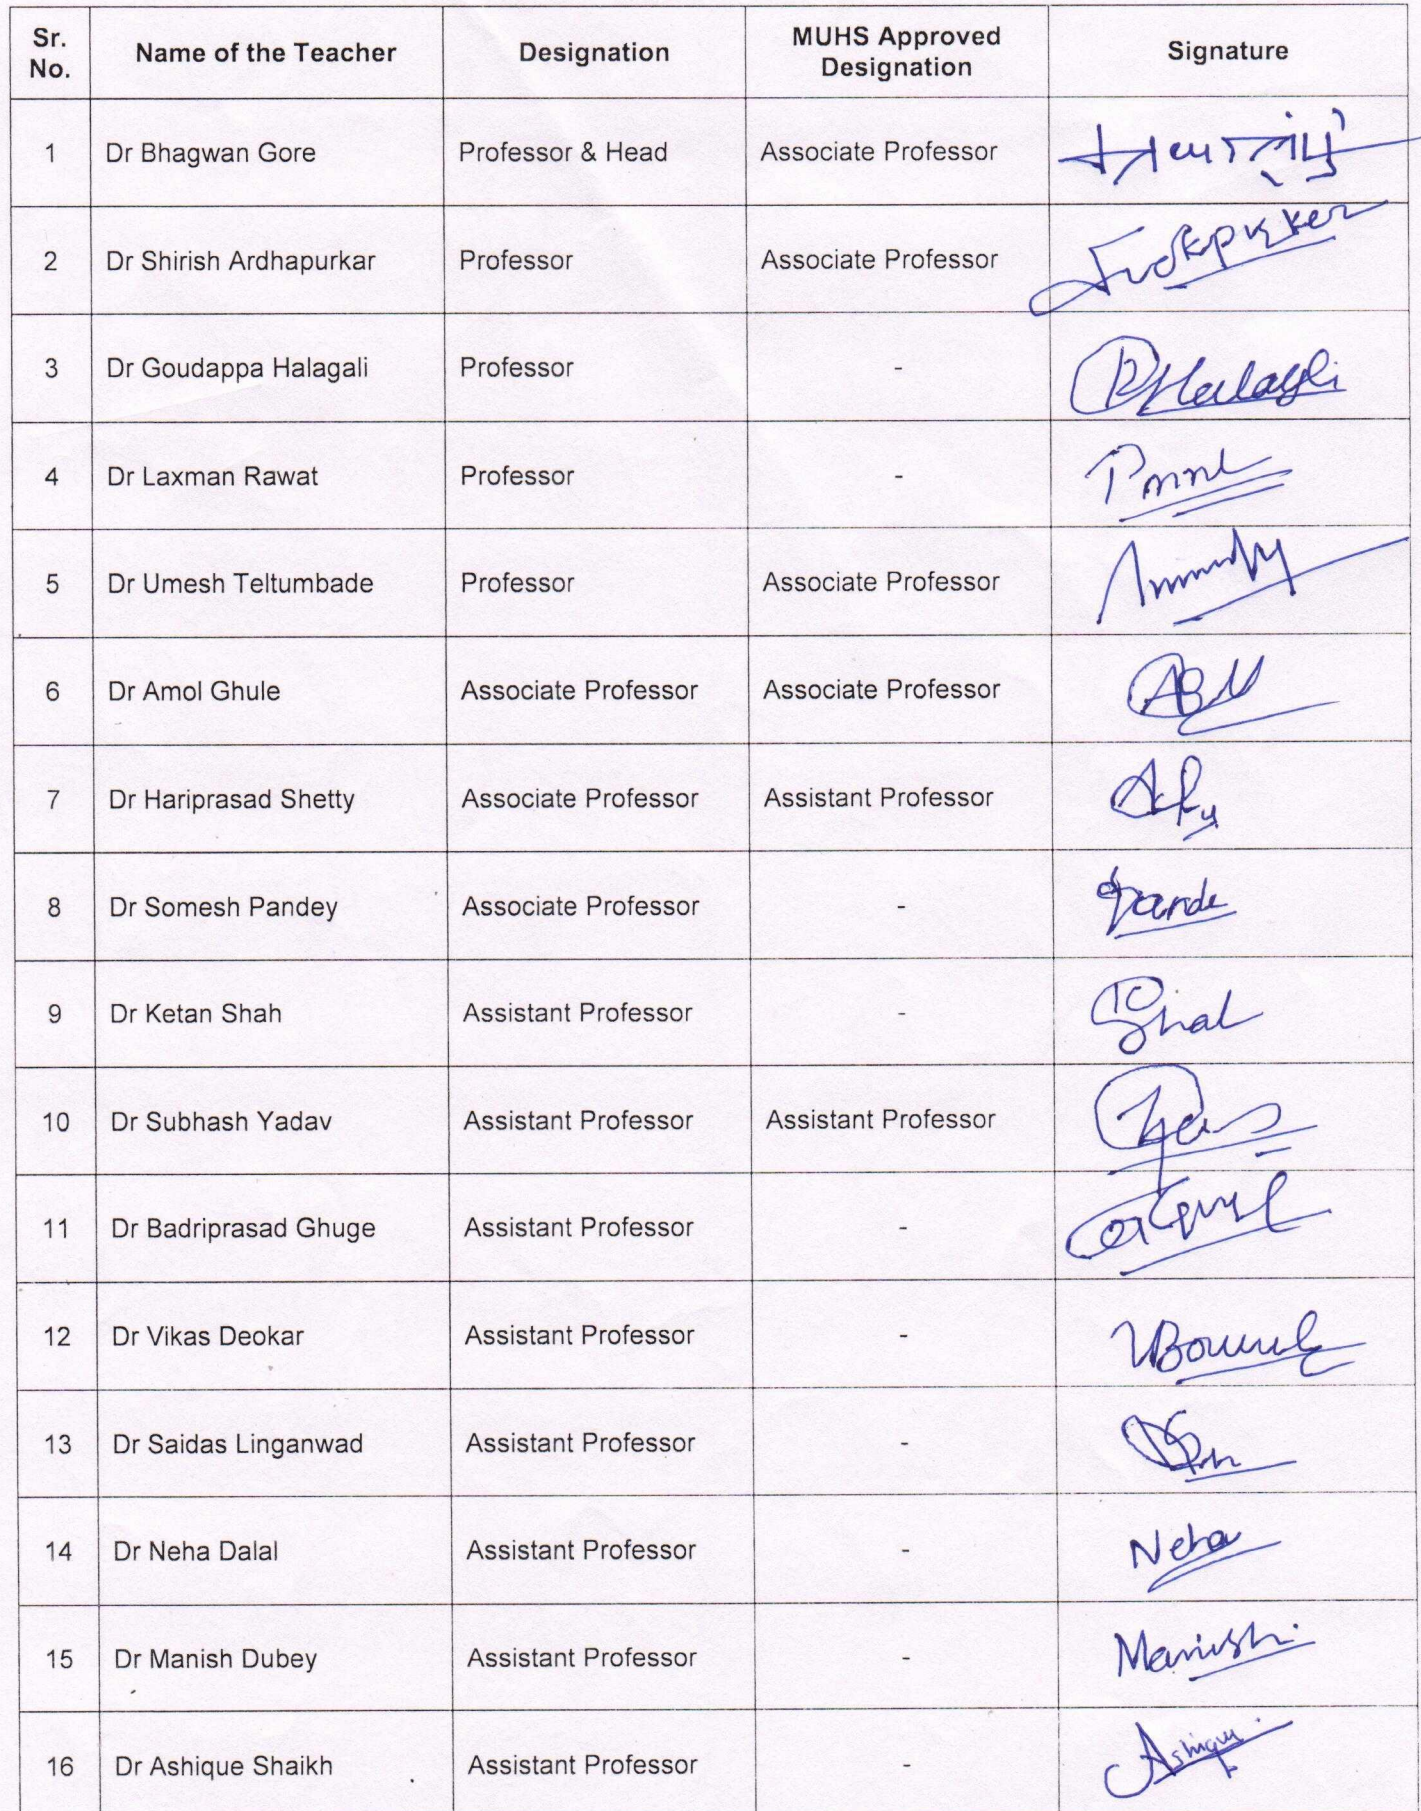 Sr. No. Name of the Teacher Designation MUHS Approved Designation Signature
1 Dr Bhagwan Gore Professor & Head Associate Professor
2 Dr Shirish Ardhapurkar Professor Associate Professor
3 Dr Goudappa Halagali Professor -
4 Dr Laxman Rawat Professor -
5 Dr Umesh Teltumbade Professor Associate Professor
6 Dr Amol Ghule Associate Professor Associate Professor
7 Dr Hariprasad Shetty Associate Professor Assistant Professor
8 Dr Somesh Pandey Associate Professor -
9 Dr Ketan Shah Assistant Professor -
10 Dr Subhash Yadav Assistant Professor Assistant Professor
11 Dr Badriprasad Ghuge Assistant Professor -
12 Dr Vikas Deokar Assistant Professor -
13 Dr Saidas Linganwad Assistant Professor -
14 Dr Neha Dalal Assistant Professor - Neha
15 Dr Manish Dubey Assistant Professor - Manish
16 Dr Ashique Shaikh Assistant Professor - Ashique